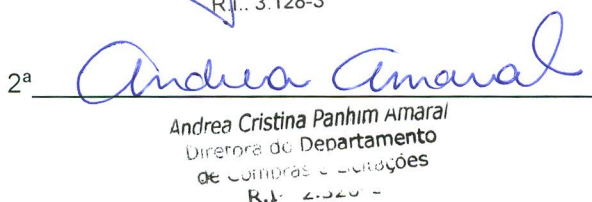 R.I.: 3.128-3
2ª Andrea Amaral
Andrea Cristina Panhim Amaral
Diretora do Departamento
de Compras e Licitações
R.I.